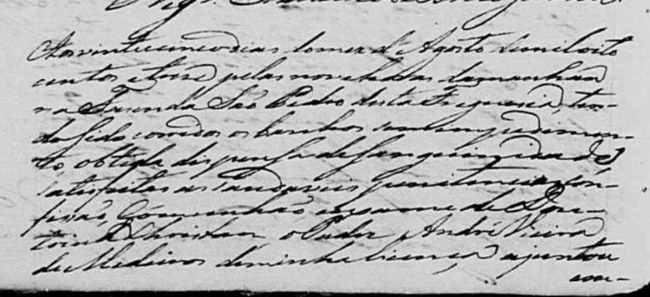 Aos vinte cinco dias do mez d'Agosto de mil oito
centos e pelas nove horas da manhan
na Fazenda São Pedro desta Freguesia, ten-
do sido corridos os banhos sem impedimen-
to, obtida dispensa de sanguinidade
satisfeitas as saudaveis penitencias, con-
fissão, Comunhão, e exame de Dou-
trina Christan o Padre André Vieira
de Medeiros de minha licença ajuntou
em-